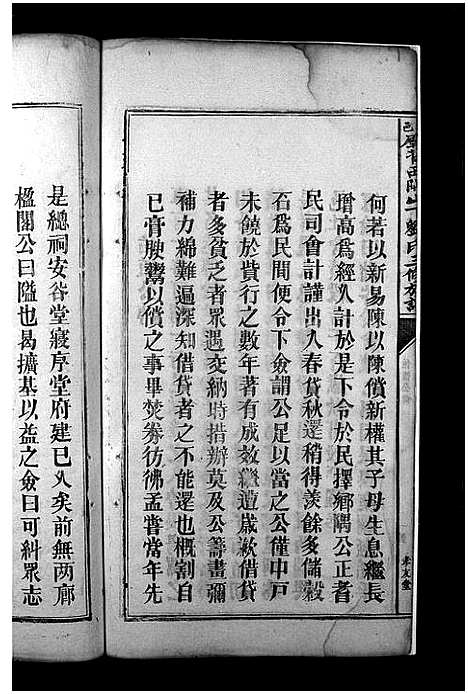 何若以新易陳以陳償新權其子母生息繼長
增高爲經久計於是下令於民擇鄉隅公正者
民司會計謹出入春貸秋還稍得羨餘多儲穀
石爲民間便令下僉謂公足以當之公僅中戸
未饒於貲行之數年著有成效繼遭歲歉借貸
者多貧乏者眾遇交納時措辦莫及公籌畫彌
補力綿難遍深知借貸者之不能還也概割自
已膏腴鬻以償之事畢焚劵彷彿孟嘗當年先
是總祠安谷堂寢序堂府建已久矣前無两廊
楹閣公曰隘也曷擴基以益之僉曰可糾眾志
孝友堂